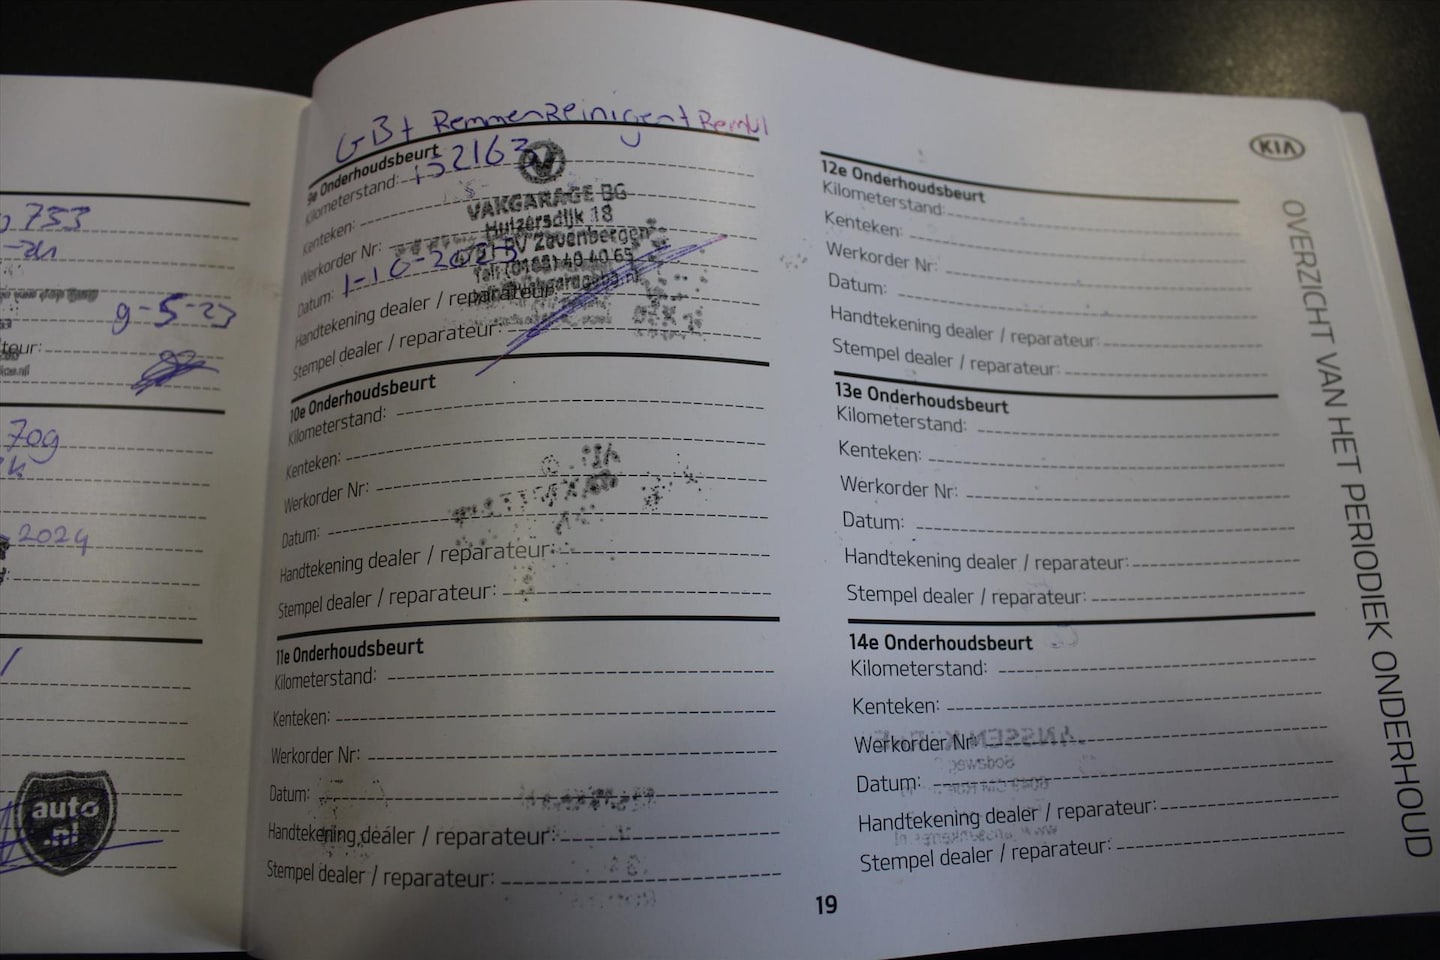 733
9-5-23
teur:
709
2024
auto
.nl
GB+ Remmen Reinigen+ Remvl
9e Onderhoudsbeurt
Kilometerstand: 132163
Kenteken:
Werkorder Nr:
Datum: 1-10-2025
Handtekening dealer / reparateur:
Stempel dealer / reparateur:
VAKGARAGE BG
Huizersdijk 18
Zevenbergen
10e Onderhoudsbeurt
Kilometerstand:
Kenteken:
Werkorder Nr:
Datum:
Handtekening dealer / reparateur:
Stempel dealer / reparateur:
11e Onderhoudsbeurt
Kilometerstand:
Kenteken:
Werkorder Nr:
Datum:
Handtekening dealer / reparateur:
Stempel dealer / reparateur:
12e Onderhoudsbeurt
Kilometerstand:
Kenteken:
Werkorder Nr:
Datum:
Handtekening dealer / reparateur:
Stempel dealer / reparateur:
13e Onderhoudsbeurt
Kilometerstand:
Kenteken:
Werkorder Nr:
Datum:
Handtekening dealer / reparateur:
Stempel dealer / reparateur:
14e Onderhoudsbeurt
Kilometerstand:
Kenteken:
Werkorder Nr:
Datum:
Handtekening dealer / reparateur:
Stempel dealer / reparateur:
KIA
OVERZICHT VAN HET PERIODIEK ONDERHOUD
19